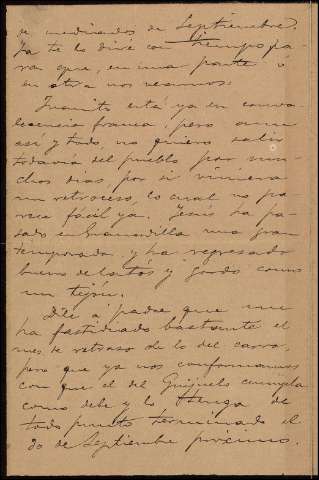 a mediados de Septiembre.
Ya te lo diré con tiempo pa-
ra que, en una parte ó
en otra nos veamos.
Juanito está ya en conva-
lecencia franca, pero aun
así y todo, no quiero salir
todavía del pueblo por mu-
chos dias, por si viniera
un retroceso, lo cual no pa-
rece fácil ya. Jesús ha pa-
sado en Granadilla una gran
temporada y ha regresado
bueno de
y gordo como
un tejón.
Dile á padre que me
ha fastidiado bastante el
retraso de lo del carro,
pero que ya nos conformamos
con que el del Guijuelo cumpla
como debe y lo tenga de
todo punto terminado el
30 de Septiembre próximo.